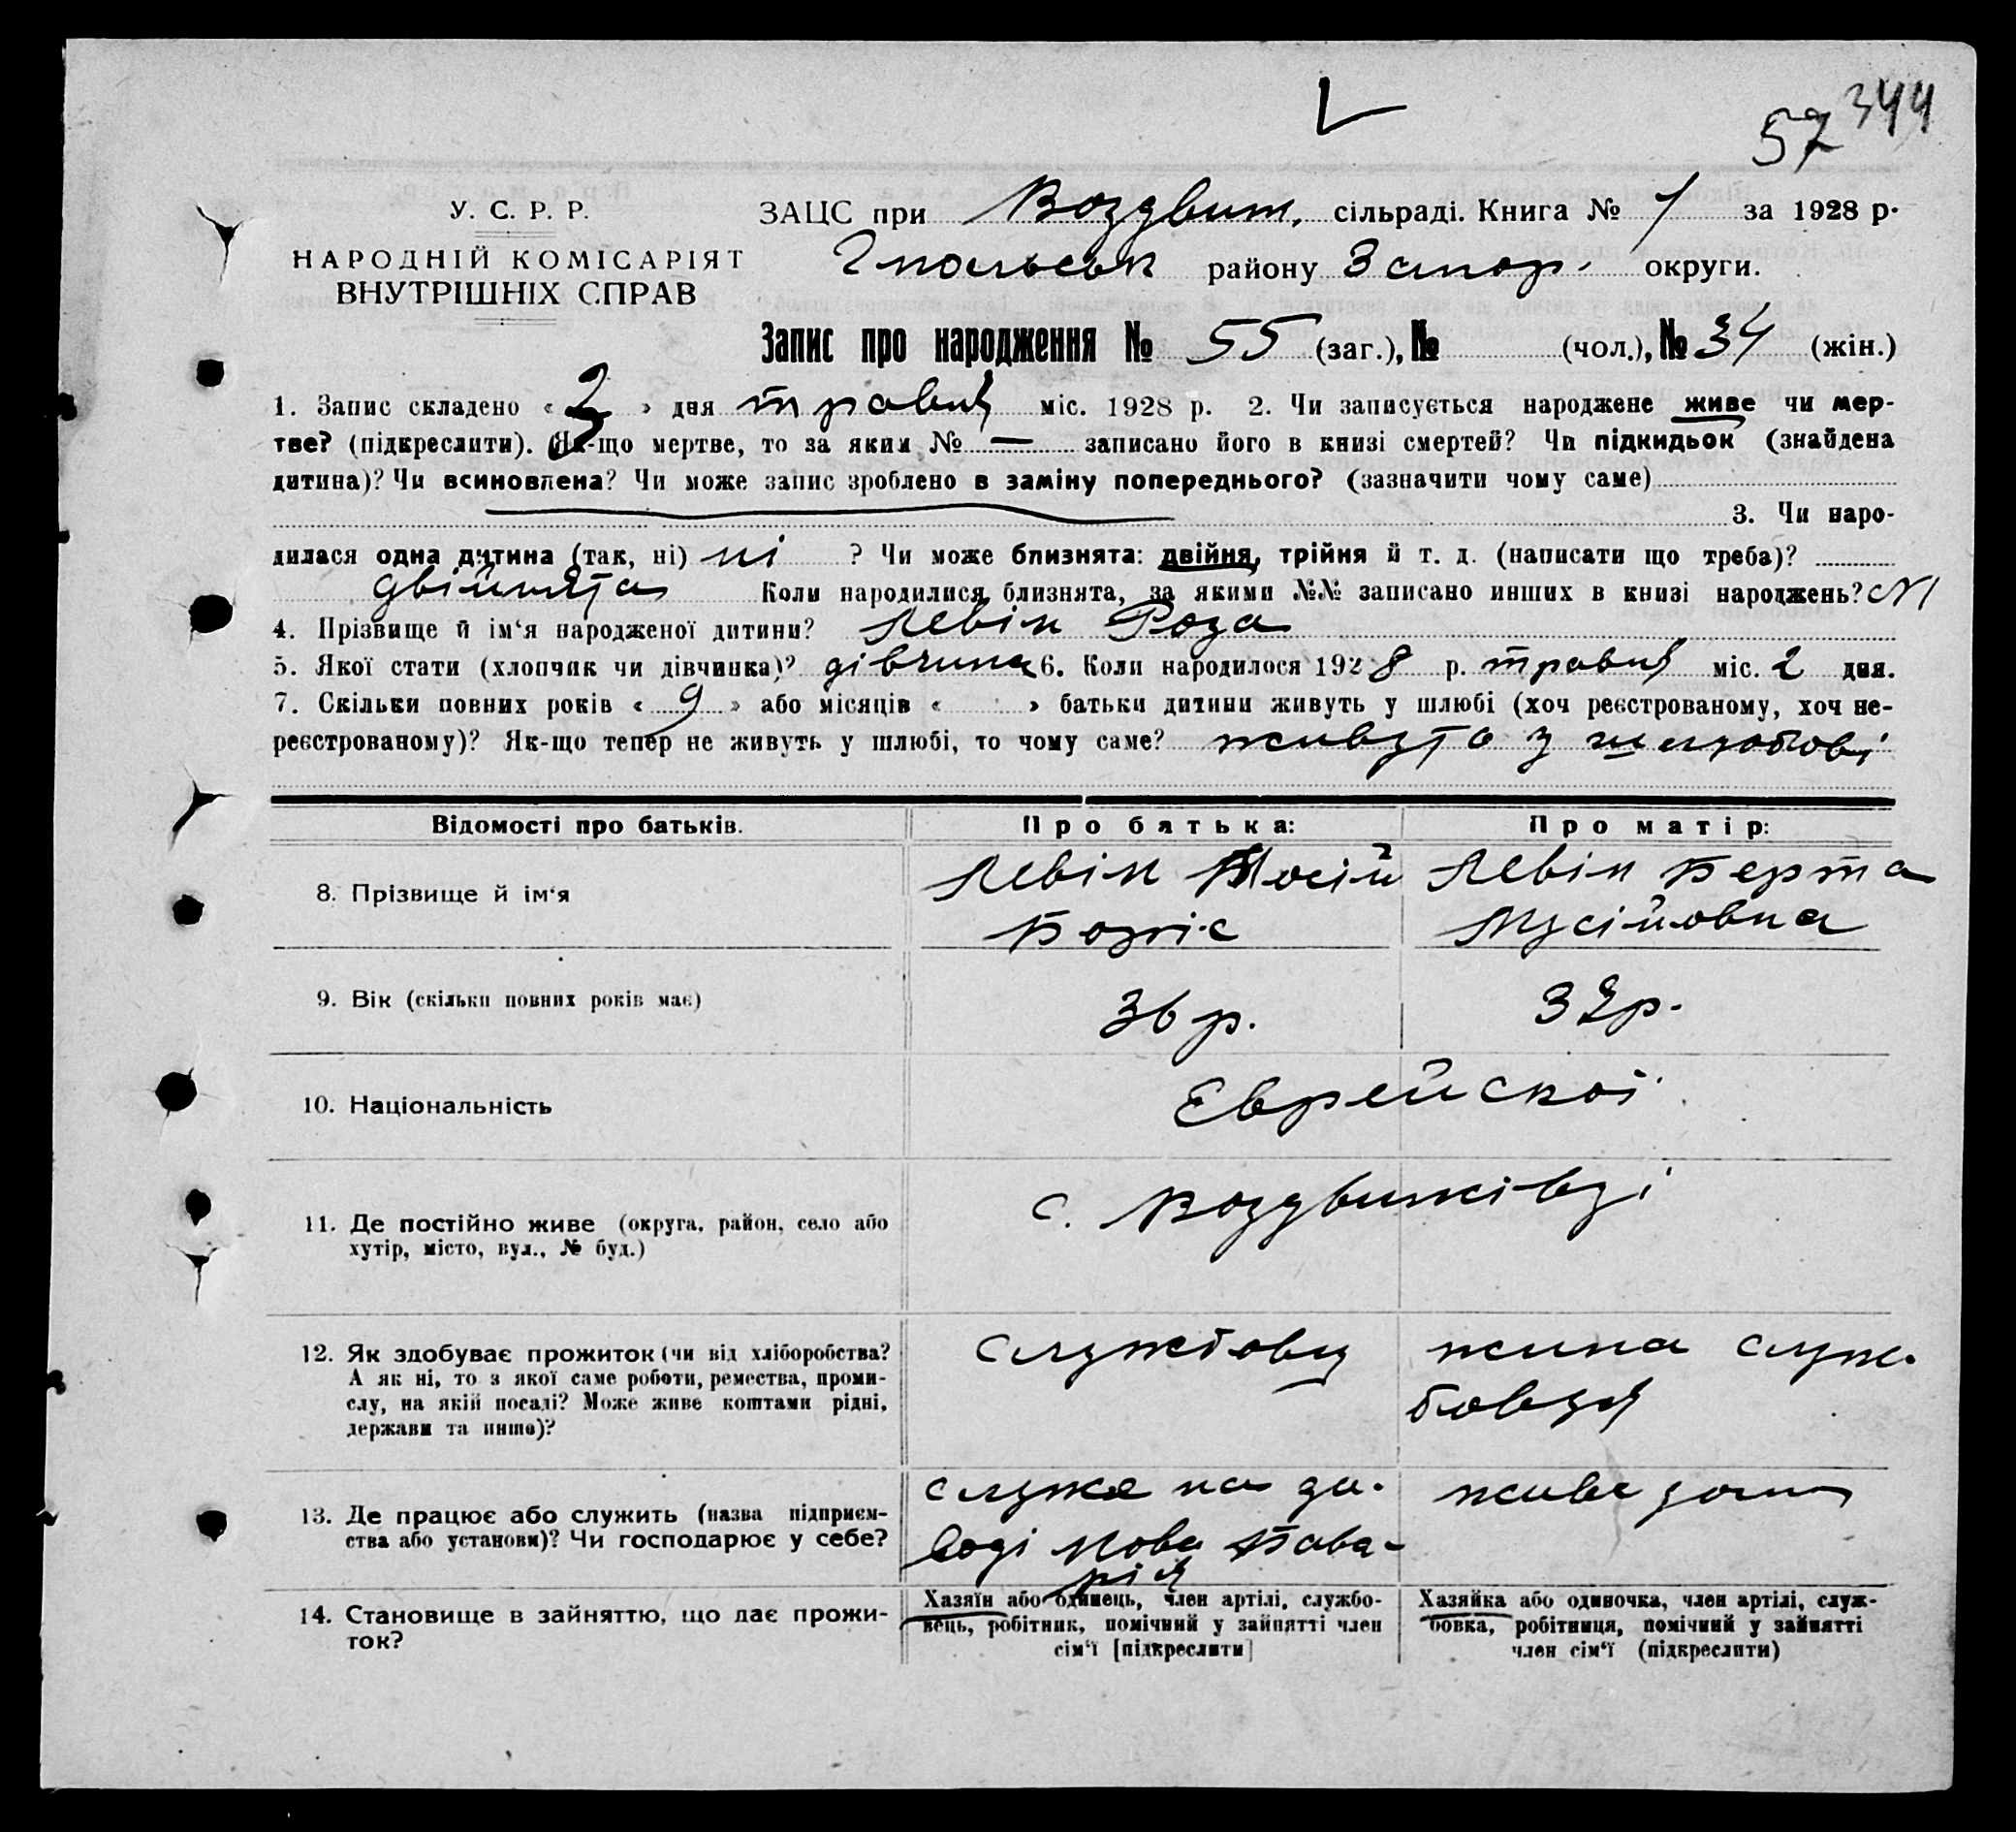 344
57
У. С. Р. Р.
НАРОДНІЙ КОМІСАРІЯТ
ВНУТРІШНІХ СПРАВ
ЗАЦС при Воздвиж. сільраді. Книга № 1 за 1928 р.
Гпольськ району Запор. округи.
Запис про народження № 55 (заг.), № (чол.), № 34 (жін.)
1. Запис складено « 3 » дня травня міс. 1928 р. 2. Чи записується народжене живе чи мер-
тве? (підкреслити). Як-що мертве, то за яким № — записано його в книзі смертей? Чи підкидьок (знайдена
дитина)? Чи всиновлена? Чи може запис зроблено в заміну попереднього? (зазначити чому саме)
3. Чи наро-
дилася одна дитина (так, ні) ні ? Чи може близнята: двійня, трійня й т. д. (написати що треба)?
двійнята Коли народилися близнята, за якими №№ записано инших в книзі народжень? №
4. Прізвище й ім‘я народженої дитини? Левін Роза
5. Якої стати (хлопчик чи дівчинка)? дівчина 6. Коли народилося 1928 р. травня міс. 2 дня.
7. Скільки повних років « 9 » або місяців « » батьки дитини живуть у шлюбі (хоч реєстрованому, хоч не-
реєстрованому)? Як-що тепер не живуть у шлюбі, то чому саме? живуть у шлюбові
Відомості про батьків.
Про батька:
Про матір:
8. Прізвище й ім‘я
Левін Йосій
Боріс
Левін Берта
Мусійовна
9. Вік (скільки повних років має)
36 р.
32 р.
10. Національність
Еврейскої
11. Де постійно живе (округа, район, село або
хутір, місто, вул., № буд.)
с. Воздвижівці
12. Як здобуває прожиток (чи від хліборобства?
А як ні, то з якої саме роботи, ремества, проми-
слу, на якій посаді? Може живе коштами рідні,
держави та инше)?
службовц
жинка служ.
бовця
13. Де працює або служить (назва підприєм-
ства або установи)? Чи господарює у себе?
служе на за.
воді Нова Бава-
рія
живе дома
14. Становище в зайняттю, що дає прожи-
ток?
Хазяїн або одинець, член артілі, службо-
вець, робітник, помічний у зайнятті член
сім‘ї [підкреслити]
Хазяйка або одиночка, член артілі, служ-
бовка, робітниця, помічний у зайнятті
член сім‘ї (підкреслити)